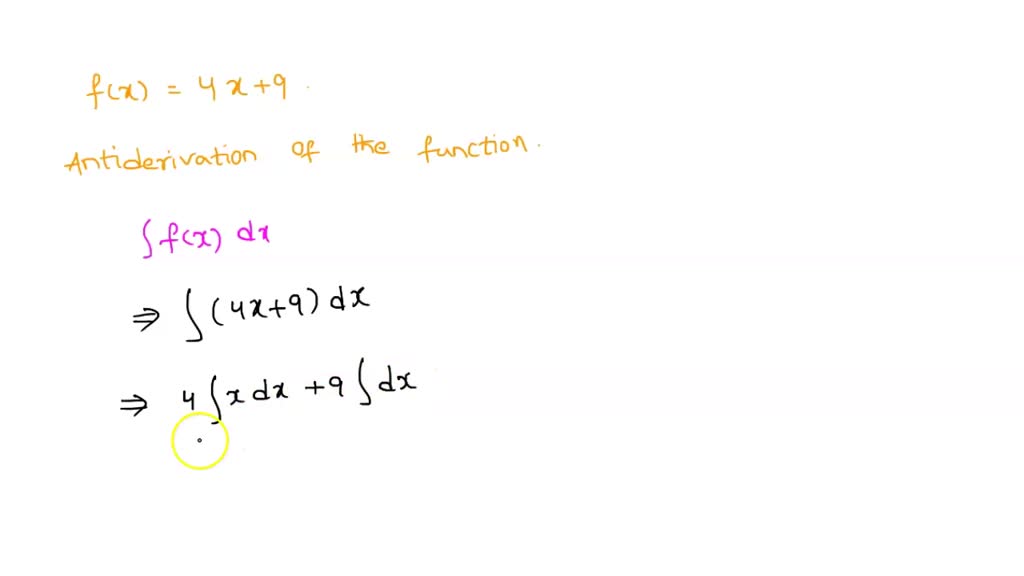 f(x) = 4x+9.
Antiderivation of the function.
∫f(x) dx
⇒ ∫(4x+9) dx
⇒ 4∫x dx + 9∫dx